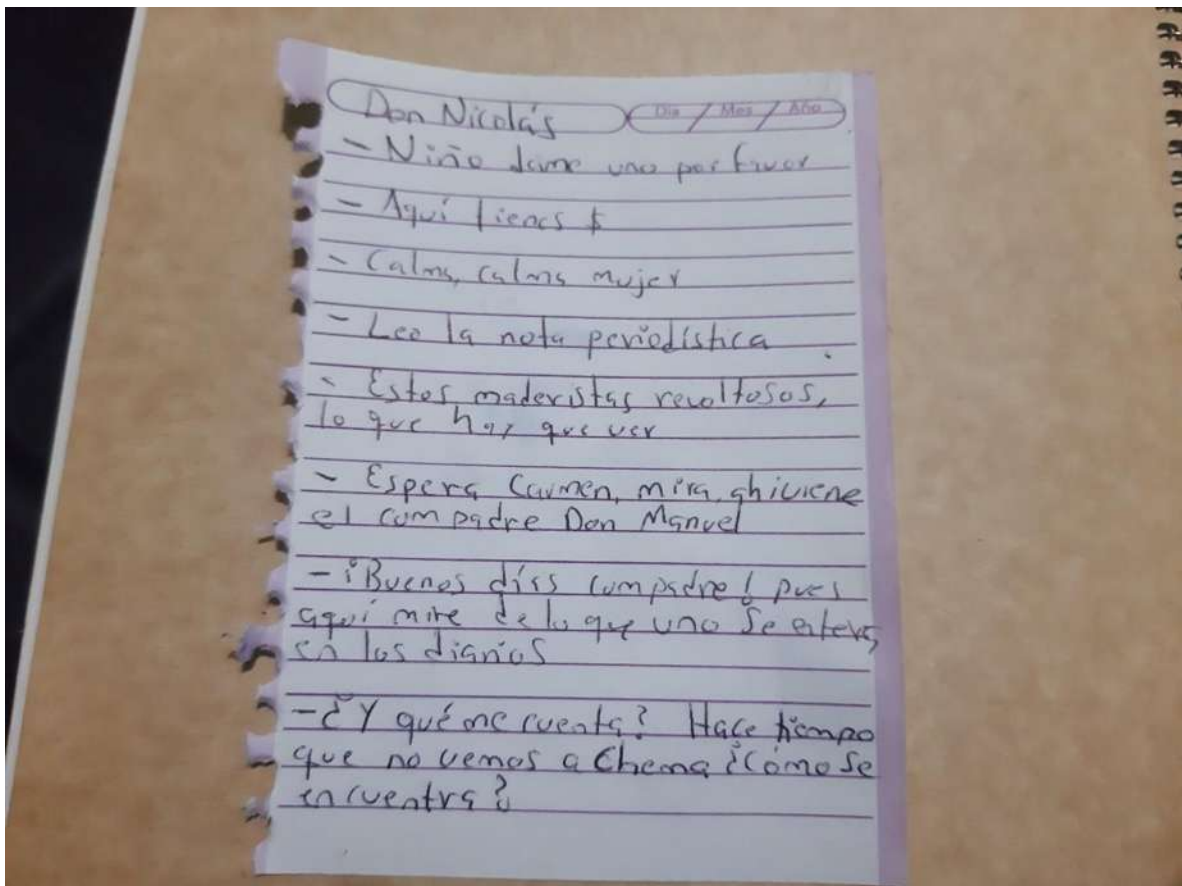 Don Nicolás
Día / Mes / Año
- Niño dame uno por favor
- Aquí tienes $
- Calma, calma mujer
- Leo la nota periodística
- Estos maderistas revoltosos,
lo que hay que ver
- Espera Carmen, mira, ahi viene
el compadre Don Manuel
- ¡Buenos días compadre! pues
aquí mire de lo que uno se entera
en los diarios
- ¿Y qué me cuenta? Hace tiempo
que no vemos a Chema ¿Cómo se
encuentra?